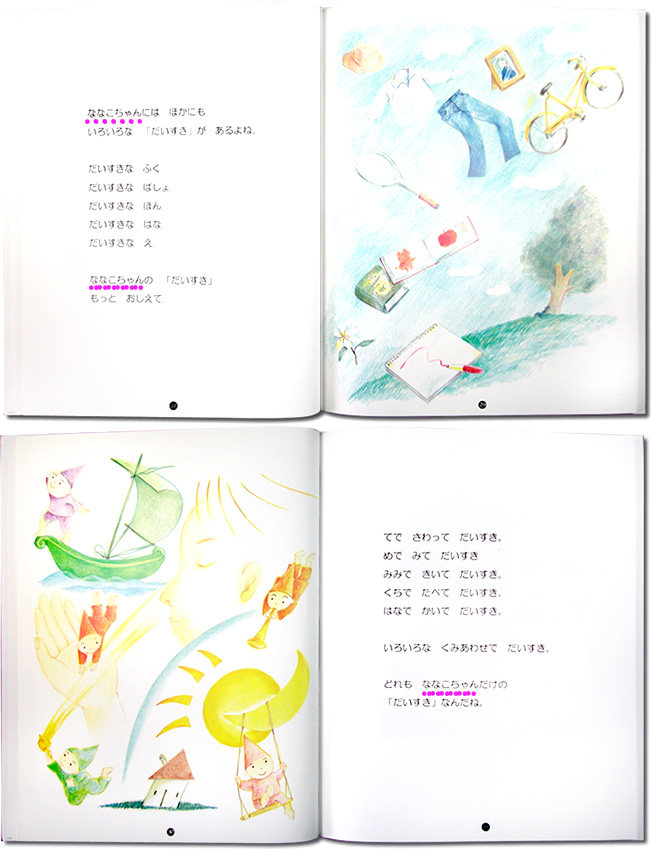 ななこちゃんには　ほかにも
いろいろな　「だいすき」が　あるよね。
だいすきな　ふく
だいすきな　ばしょ
だいすきな　ほん
だいすきな　はな
だいすきな　え
ななこちゃんの　「だいすき」
もっと　おしえて
てで　さわって　だいすき。
めで　みて　だいすき
みみで　きいて　だいすき。
くちで　たべて　だいすき。
はなで　かいで　だいすき。
いろいろな　くみあわせで　だいすき。
どれも　ななこちゃんだけの
「だいすき」なんだね。